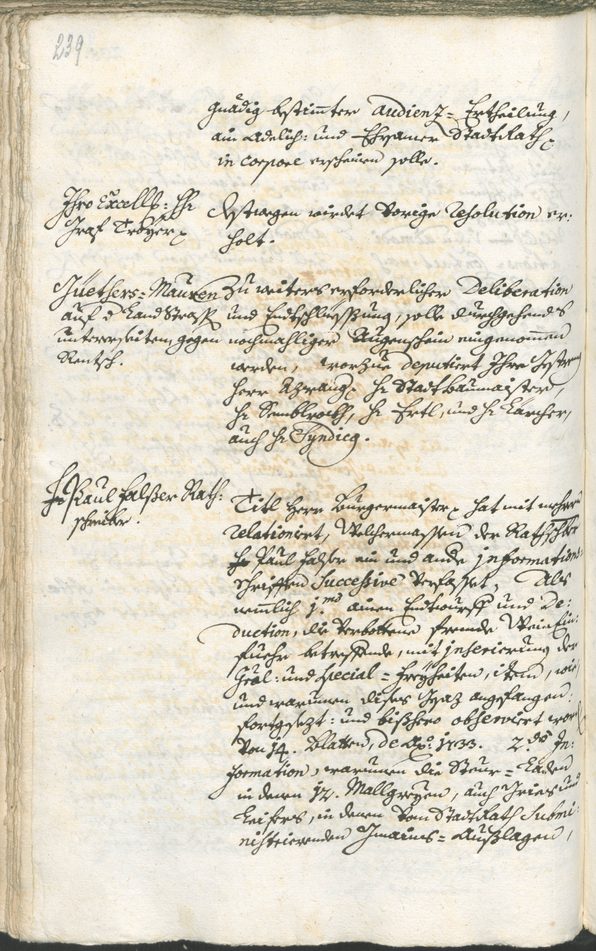 239
gnädig bestimter Audienz=Ertheilung,
ain Adelich: und Ehrsamer StadtRath
in corpore erscheinen solle.
Ihro Excell: H:
Graf Troyer
Destwegen wirdet vorige resolution er:
holt.
Mauren
auf d LandStrass
unterseiten, gegen
Rentsch.
Zu weiters erforderlicher Deliberation
und Endtschliessung, solle durchgehends
nochmahliger Augenschein eingenommen
werden, worzue deputiert Ihro Gestreng
Herr H: Stadtbaumaister
H: H: Ertl, und H: Karcher,
auch H: Syndicg.
Paul falser Rath:
schreiber.
Titl Herr Burgermaister hat mit mehrern
relationiert, Welchermassen der Rathschreiber
Paul falser ein und ande informations:
Schrifften Successive verfasset, Als
nemlich 1.mo ainen Endtwurff und De:
duction, die verbottene frembde Wein Ein:
fuehr betreffende, mit inserierung der
Gräl: und special=freyheiten, item, wie
und warumen dises angefangen:
fortgesezt: und bisshero observiert worden
von 14. Blatten, de Ao: 1733. 2.do In:
formation, warumen die Steur=
in denen 12. Mallgreyen, auch Gries und
Leifers, in denen vom StadtRath Submi:
nistrierenden =Ausslagen,